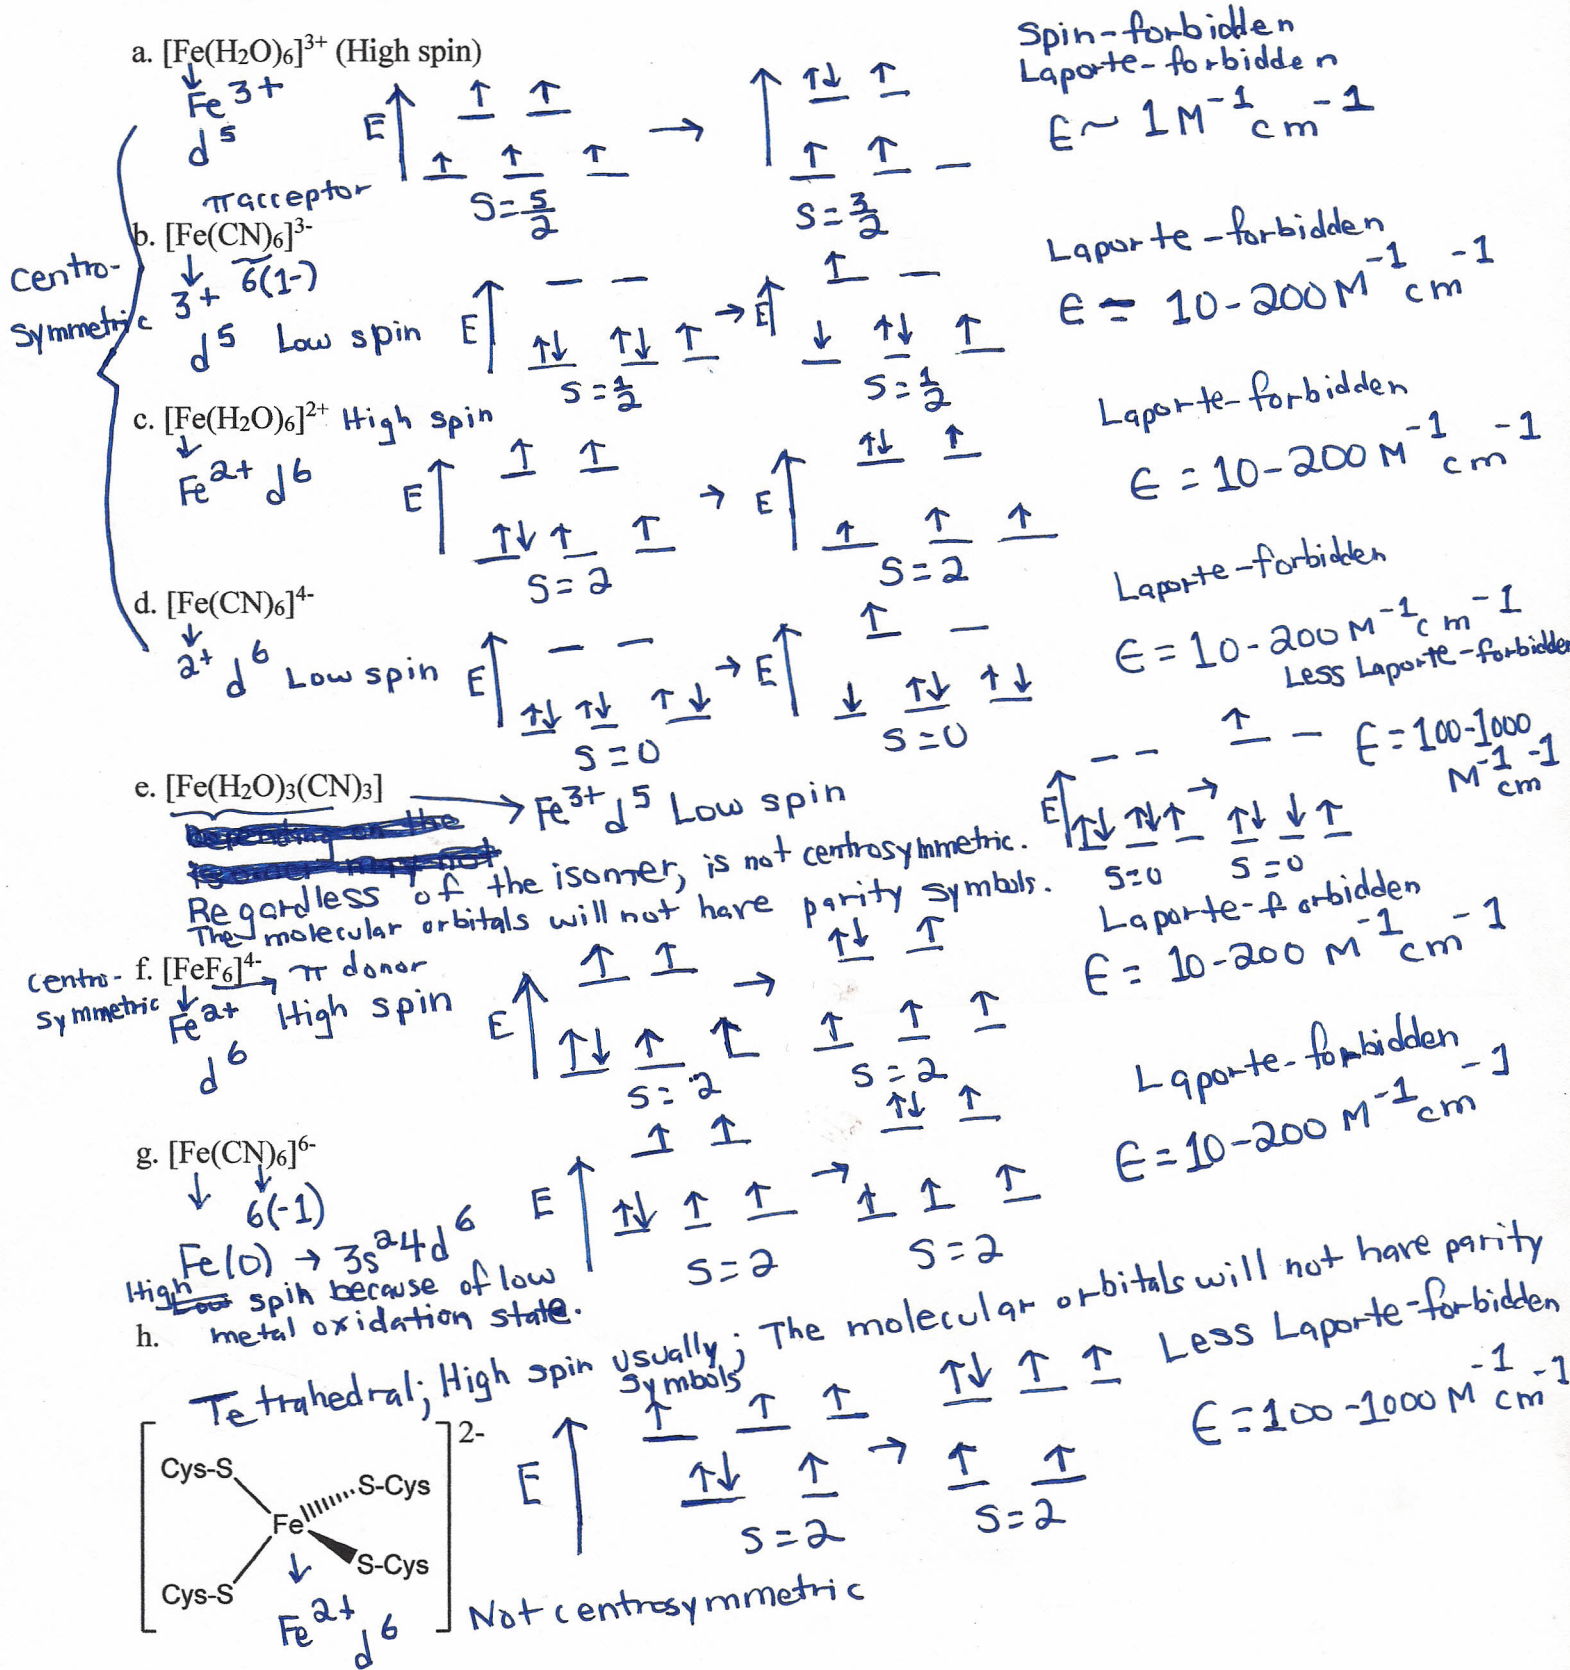 a. [Fe(H₂O)₆]³⁺ (High spin)
↓
Fe³⁺
d⁵
E ↑ ↑ ↑ ↑ ↑ → ↑↓ ↑ ↑ ↑
S = 5/2
S = 3/2
Spin-forbidden
Laporte-forbidden
ε ~ 1 M⁻¹ cm⁻¹
Centro-
symmetric
π acceptor
b. [Fe(CN)₆]³⁻
↓ 6(1-)
3+
d⁵ Low spin
E ↑↓ ↑↓ ↑ → E ↑ ↓ ↑↓ ↑
S = 1/2
S = 1/2
Laporte-forbidden
ε = 10-200 M⁻¹ cm⁻¹
c. [Fe(H₂O)₆]²⁺ High spin
↓
Fe²⁺ d⁶
E ↑ ↑ ↑↓ ↑ ↑ → E ↑↓ ↑ ↑ ↑ ↑
S = 2
S = 2
Laporte-forbidden
ε = 10-200 M⁻¹ cm⁻¹
d. [Fe(CN)₆]⁴⁻
↓
2+ d⁶ Low spin
E ↑↓ ↑↓ ↑↓ → E ↑ ↓ ↑↓ ↑↓
S = 0
S = 0
Laporte-forbidden
ε = 10-200 M⁻¹ cm⁻¹
Less Laporte-forbidden
ε = 100-1000
M⁻¹ cm⁻¹
e. [Fe(H₂O)₃(CN)₃] → Fe³⁺ d⁵ Low spin
Depending on the
isomer may not
Regardless of the isomer, is not centrosymmetric.
The molecular orbitals will not have parity symbols.
E ↑↓ ↑↓ ↑ → ↑ ↑↓ ↓ ↑
S=0
S=0
centro-
symmetric
f. [FeF₆]⁴⁻ → π donor
↓
Fe²⁺ High spin
d⁶
E ↑ ↑ ↑↓ ↑ ↑ → ↑↓ ↑ ↑ ↑ ↑
S = 2
S = 2
Laporte-forbidden
ε = 10-200 M⁻¹ cm⁻¹
g. [Fe(CN)₆]⁶⁻
↓ ↓
6(-1)
Fe(0) → 3s²4d⁶
High Low spin because of low
metal oxidation state.
E ↑ ↑ ↑↓ ↑ ↑ → ↑↓ ↑ ↑ ↑ ↑
S = 2
S = 2
Laporte-forbidden
ε = 10-200 M⁻¹ cm⁻¹
h.
Tetrahedral; High spin usually; The molecular orbitals will not have parity
symbols
Less Laporte-forbidden
ε = 100-1000 M⁻¹ cm⁻¹
E ↑ ↑ ↑ ↑↓ ↑ → ↑↓ ↑ ↑ ↑ ↑
S = 2
S = 2
2-
Cys-S
S-Cys
Fe
S-Cys
Cys-S
↓
Fe²⁺ d⁶
Not centrosymmetric